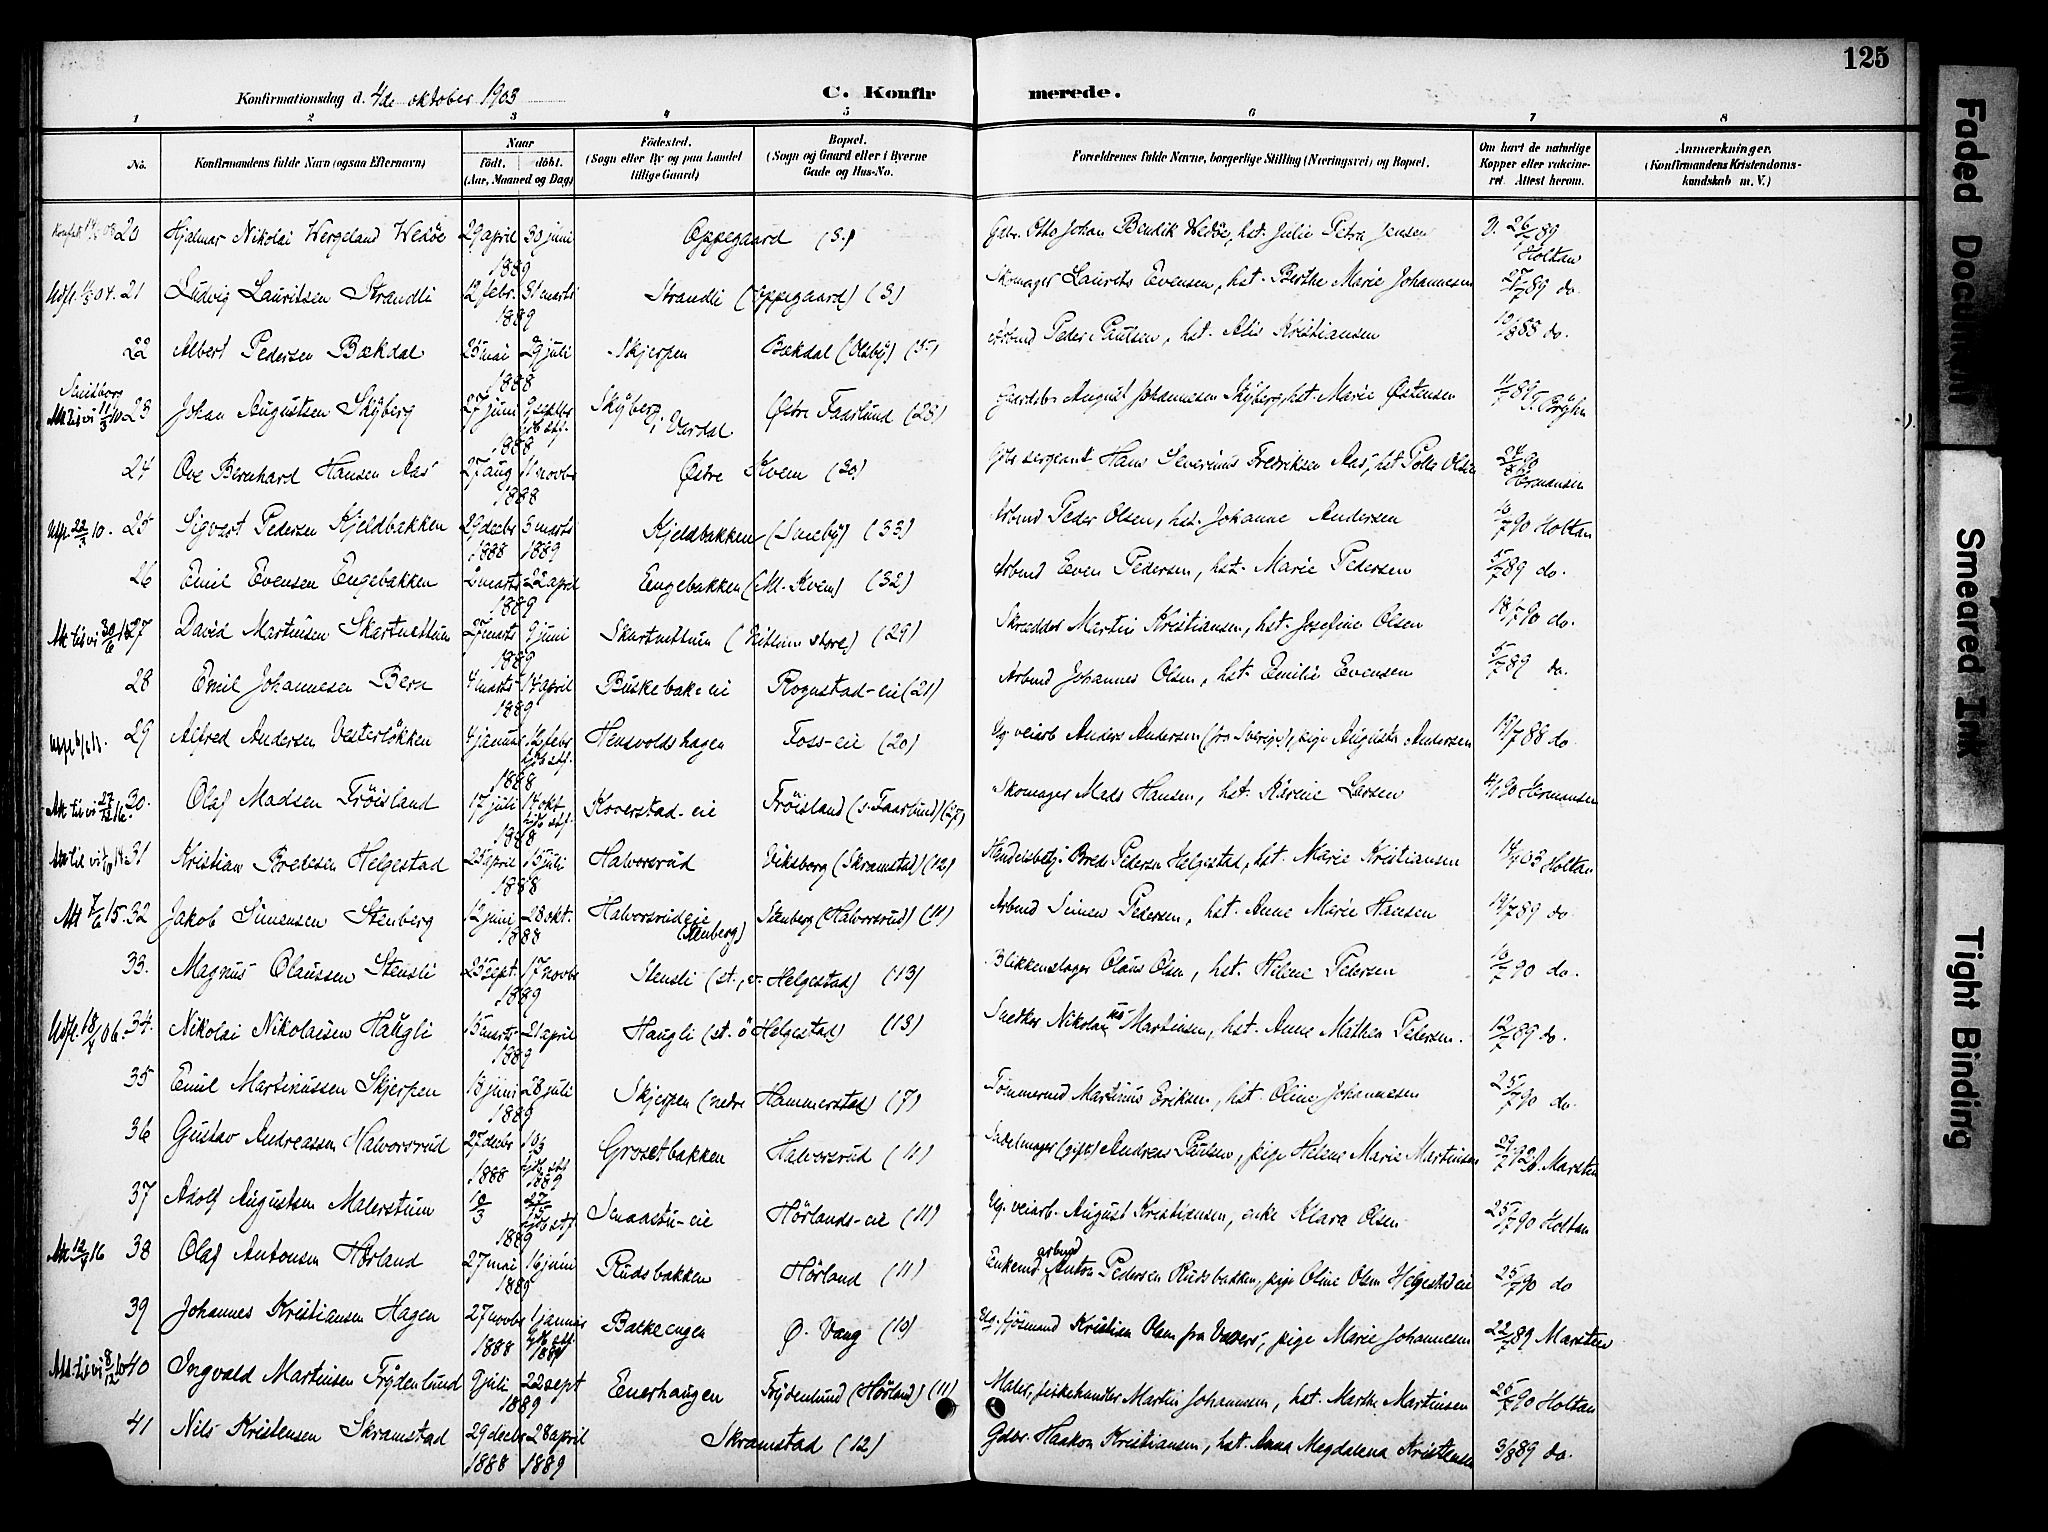 125
Konfirmationsdag d. 4de oktober 1903 C. Konfirmerede.
1 2 3 4 5 6 7 8
No. Konfirmandens fulde Navn (ogsaa Efternavn) Naar födt. döbt. (Aar, Maaned og Dag) Födested. (Sogn eller By og paa Landet tillige Gaard) Bopæl. (Sogn og Gaard eller i Byerne Gade og Hus-No. Forældrenes fulde Navne, borgerlige Stilling (Næringsvei) og Bopæl. Om havt de naturlige Kopper eller vaccineret. Attest herom. Anmærkninger. (Konfirmandens Kristendomskundskab m. V.)
20 Hjalmar Nikolai Wergeland Wedöe 29 april 30 juni 1889 Oppegaard (3.) Gdbr. Otto Johan Bendik Wedöe, hst. Julie Petra Jensen 26/1 89 Holtan
Udfl. 04. 21 Ludvig Lauritsen Strandli 12 febr. 31 marts 1889 Strandli (Oppegaard) (3) Skomager Laurits Evensen, hst. Berthe Marie Johannesen 27/7 89 do.
22 Albert Pedersen Bækdal 25 mai 29 juli 1888 Skjerpen Bækdal (Olsby) (35) Arbmd Peder Paulsen, hst. Alis Kristiansen 88 do.
23 Johan Augustsen Skyberg 27 juni 9 septbr 1888 Skyberg i Vardal Østre Faarlund (28) Gaardbr August Johannesen Skyberg, hst. Marie Østensen 89
24 Ove Bernhard Hansen Aas 27 aug 11 novbr 1888 Østre Kvem (30) Gbr sergeant Hans Severinus Fredriksen Aas, hst. Olsen 90 Hermansen
25 Sigvart Pedersen Kjeldbakken 29 decbr 1888 3 marts 1889 Kjeldbakken (Sneby) (33) Arbmd Peder Olsen, hst. Johanne Andersen 16/7 90 Holtan
26 Emil Evensen Engebakken 2 marts 22 april 1889 Engebakken (M. Kvem) (32) Arbmd Even Pedersen, hst. Marie Pedersen 5/7 89 do.
27 David Martinsen Skartuettum 27 marts 9 juni 1889 (29) Skrædder Martin Kristiansen, hst. Josefine Olsen 18/7 90 do.
28 Emil Johannesen Bern 4 marts 14 april 1889 Buskebak-eie Rognstad-eie (21) Arbmd Johannes Olsen, hst. Emilie Evensen 5/7 89 do.
29 Alfred Andersen Vesterlökken 4 januar 12 febr 1888 Hensvoldshagen Foss-eie (20) Ug. veiarb Anders Andersen (fra Sverige), pige Augusta Andersen 19/7 88 do.
30. Olaf Madsen Fröisland 17 juli 14 okt 1888 Koverstad-eie Fröisland (v. Faarlund) (27) Skomager Mads Hansen, hst. Karine Larsen 4/1 90 Hermansen
31 Kristian Bredesen Helgestad 25 april 15 juli 1888 Halvorsrud Viksberg (Skramstad) (12) Handelsbetj. Brede Pedersen Helgestad, hst. Marie Kristiansen 14/1 03 Holtan
Att 7/6 15. 32 Jakob Simensen Stenberg 12 juni 28 okt. 1888 Halvorsrudeie (Stenberg) Stenberg (Halvorsrud) (11) Arbmd Simen Pedersen, hst. Anne Marie Hansen 19/7 89 do.
33. Magnus Olaussen Stensli 25 sept. 17 novbr 1889 Stensli (st., v. Helgestad) (13) Blikkenslager Olaus Olsen, hst. Helene Pedersen 16/7 90 do.
Udfl. 18/4 06. 34. Nikolai Nikolaisen Haugli 15 marts 21 april 1889 Haugli (st. ö Helgestad) (13) Snekker Nikolaus Martinsen, hst. Anne Mathea Pedersen. 12/7 89 do.
35 Emil Martinussen Skjerpen 18 juni 28 juli 1889 Skjerpen (nedre Hammerstad) (7) Tömmermd Martinus Eriksen, hst. Oline Johannesen 25/7 90 do.
36 Gustav Andreassen Halvorsrud 27 decbr 1888 10/3 1889 Grosetbakken Halvorsrud (11) Sadelmager (gift) Andreas Paulsen, pige Helene Marie Martinsen 29/7 92 Marsten
37 Adolf Augustsen Malerstuen 10/3 1889 Smaastu-eie Hörlands-eie (11) Ug. veiarb. August Kristiansen, enke Klara Olsen 25/7 90 Holtan
Att 12/7 16 38 Olaf Antonsen Hörland 27 mai 16 juni 1889 Rudsbakken Hörland (11) Enkemd arbmd Anton Pedersen Rudsbakken, pige Oline Olsen Helgestadeie 25/7 90 do
39 Johannes Kristiansen Hagen 27 novbr 1888 1 januar 1889 Balkeengen Ø. Vang (10) Ug. fjösmand Kristian Olsen fra, pige Marie Johannesen 22/7 89 Marsten
40 Ingvald Martinsen Frydenlund 9 juli 22 sept 1889 Enerhaugen Frydenlund (Hörland) (11) Maler, fiskehandler Martin Johannesen, hst. Marthe Martinsen 25/7 90 Holtan
41 Nils Kristensen Skramstad 29 decbr 1888 28 april 1889 Skramstad (12) Gdbr. Haakon Kristiansen, hst. Anna Magdalena Kristensen 3/8 89 do.
Faded Document
Smeared Ink
Tight Binding